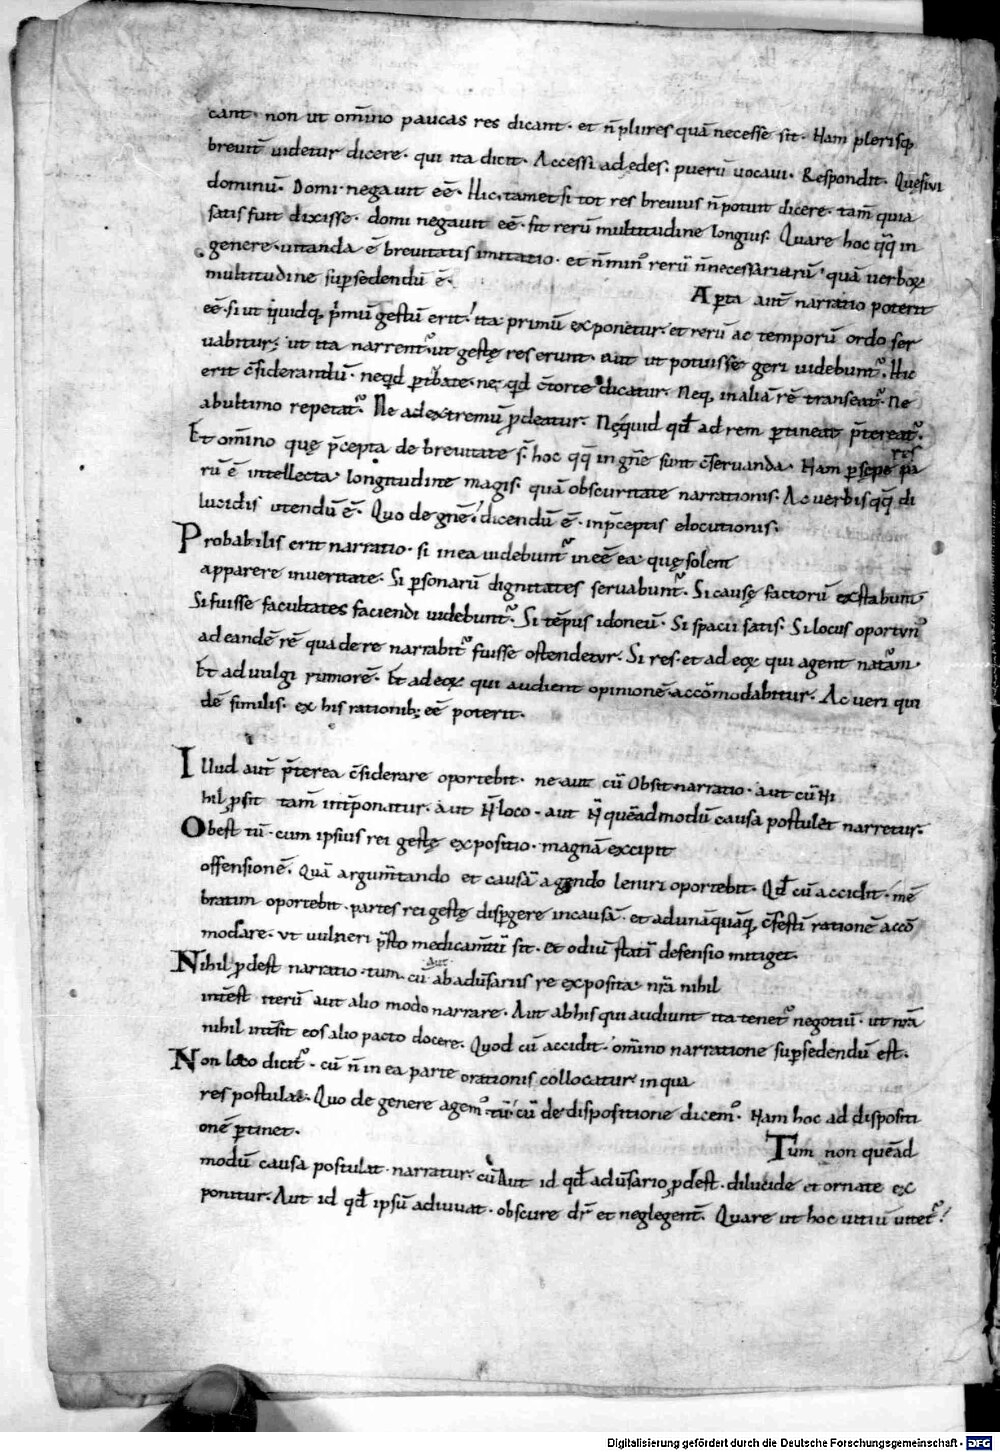 cant· non ut om̄ino paucas res dicant· et n̄ plures quā necesse sit· Nam plerisq;
brevit̄ videtur dicere· qui ita dicit· Accessi ad ędes· puerū vocavi· Respondit· Quęsivi
dominū· Domi negavit eē· Hic, tametsi tot res brevius n̄ potuit dicere· tam̄ quia
satis fuit dixisse· domi negavit eē· fit rerū multitudine longius· Quare hoc qq̄ in
genere· vitanda ē brevitatis imitatio· et n̄ min᷒ rerū n̄ necessariarū· quā verboꝝ
multitudine sup̄sedendū ē·
Ap̄ta aut̄ narratio poterit
eē· si ut q̄cidq; p̄mū gestū erit· ita primū exponetur· et rerū ac temporū ordo ser
vabitur; ut ita narrent᷒ ut gestę res erunt· aut ut potuisse geri videbunt᷒· Hic
erit c̄siderandū· neq̄d p̄t̄bate· ne q̄d c̄torte dicatur· Neq; in aliā rē transeat᷒· Ne
ab ultimo repetat᷒· Ne ad extremū p̄deatur· Nequid qd̄ ad rem p̄tineat p̄tereat᷒·
Et om̄ino quę p̄cepta de brevitate s̄· hoc qq̄ in gn̄e sunt c̄servanda· Nam p̄sępe res pa
rū ē intellecta longitudine magis· quā obscuritate narrationis· Ac verbis qq̄ di
lucidis utendū ē· Quo de gn̄e· dicendū ē· in p̄ceptis elocutionis·
Probabilis erit narratio· si in ea videbunt᷒ in eē ea· quę solent
apparere in veritate· Si p̄sonarū dignitates servabunt᷒· Si causę factorū exstabunt
Si fuisse facultates faciendi videbunt᷒· Si tēpus idoneū· Si spacii satis· Si locus oportun᷒
ad eandē rē qua de re narrabit᷒ fuisse ostendetur· Si res· et ad eoꝝ qui agent natam̄·
Et ad vulgi rumorē· Et ad eoꝝ qui audient opinionē· accōmodabitur· Ac veri qui
dē similis· ex his rationib; eē poterit·
Illud aut̄ p̄terea c̄siderare oportebit· ne aut cū obsit narratio· aut cū ni
hil p̄sit tam̄ int̄ponatur· aut n̄ loco· aut n̄ quēadmodū causa postulet narretur·
Obest tū· cum ipsius rei gestę expositio· magnā excipit
offensionē· quā argum̄tando et causā agendo leniri oportebit· Qd̄ cū accidit· mē
bratim oportebit· partes rei gestę disp̄gere in causā· et ad unāquāq; c̄festī rationē accō
modare· ut vulneri p̄sto medicam̄tū sit· et odiū statī defensio mitiget·
Nihil p̄dest narratio· tum cū aut ab adūsariis re exposita nr̄a nihil
int̄est iterū aut alio modo narrare· Aut ab his qui audiunt ita tenet᷒ negotiū· ut nr̄a
nihil int̄sit eos alio pacto docere· Quod cū accidit· om̄ino narratione sup̄sedendū est·
Non loco dicit᷒· cū n̄ in ea parte orationis collocatur in qua
res postulat· Quo de genere agem᷒ tū· cū de dispositione dicem᷒· Nam hoc ad dispositi
onē p̄tinet·
Tum non quēad
modū causa postulat narratur· cū aut id qd̄ adūsario p̄dest· dilucide et ornate ex
ponitur· Aut id qd̄ ipsū adiuvat· obscure dr̄ et neglegent̄· Quare ut hoc vitiū vitet᷒·
Digitalisierung gefördert durch die Deutsche Forschungsgemeinschaft - DFG